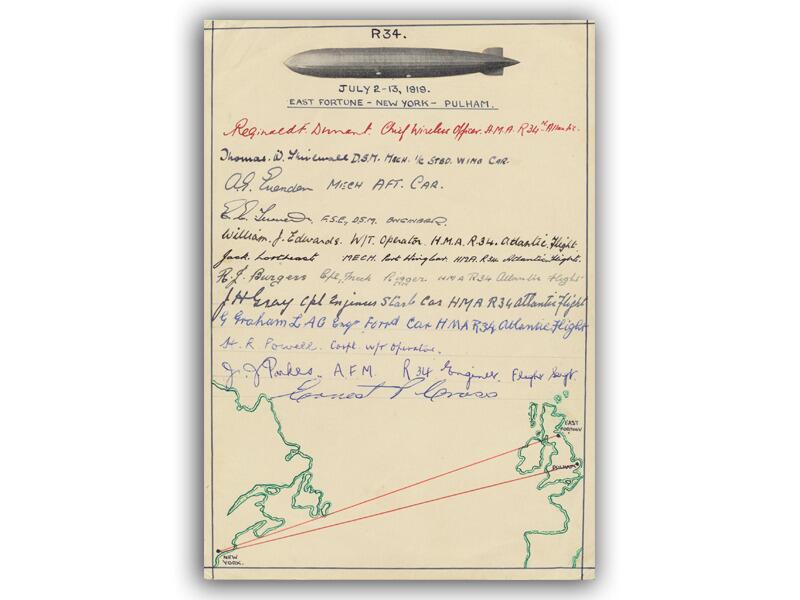 R34.
JULY 2-13, 1919.
EAST FORTUNE - NEW YORK - PULHAM.
Chief Wireless Officer. H.M.A. R34 Atlantic.
Thomas. D. D.S.M. MECH. I/C STBD. WING CAR.
MECH AFT. CAR.
F.S.E., D.S.M. ENGINEER.
William. J. Edwards. W/T. Operator. H.M.A. R.34. Atlantic. Flight.
Jack. MECH. Port H.M.A. R.34 Atlantic. Flight.
R. J. Burgess Cpl, Rigger H M A R34 Atlantic Flight
J H Gray Cpl Engineer Starb Car H M A R34 Atlantic Flight
G Graham L A C Engr Forrd Car H M A R34 Atlantic Flight
R Powell. Corpl. W/T Operator.
J. Parkes. A.F.M. R 34 Engineer. Flight Sergt.
Ernest P Cross
EAST
FORTUNE
PULHAM
NEW
YORK.